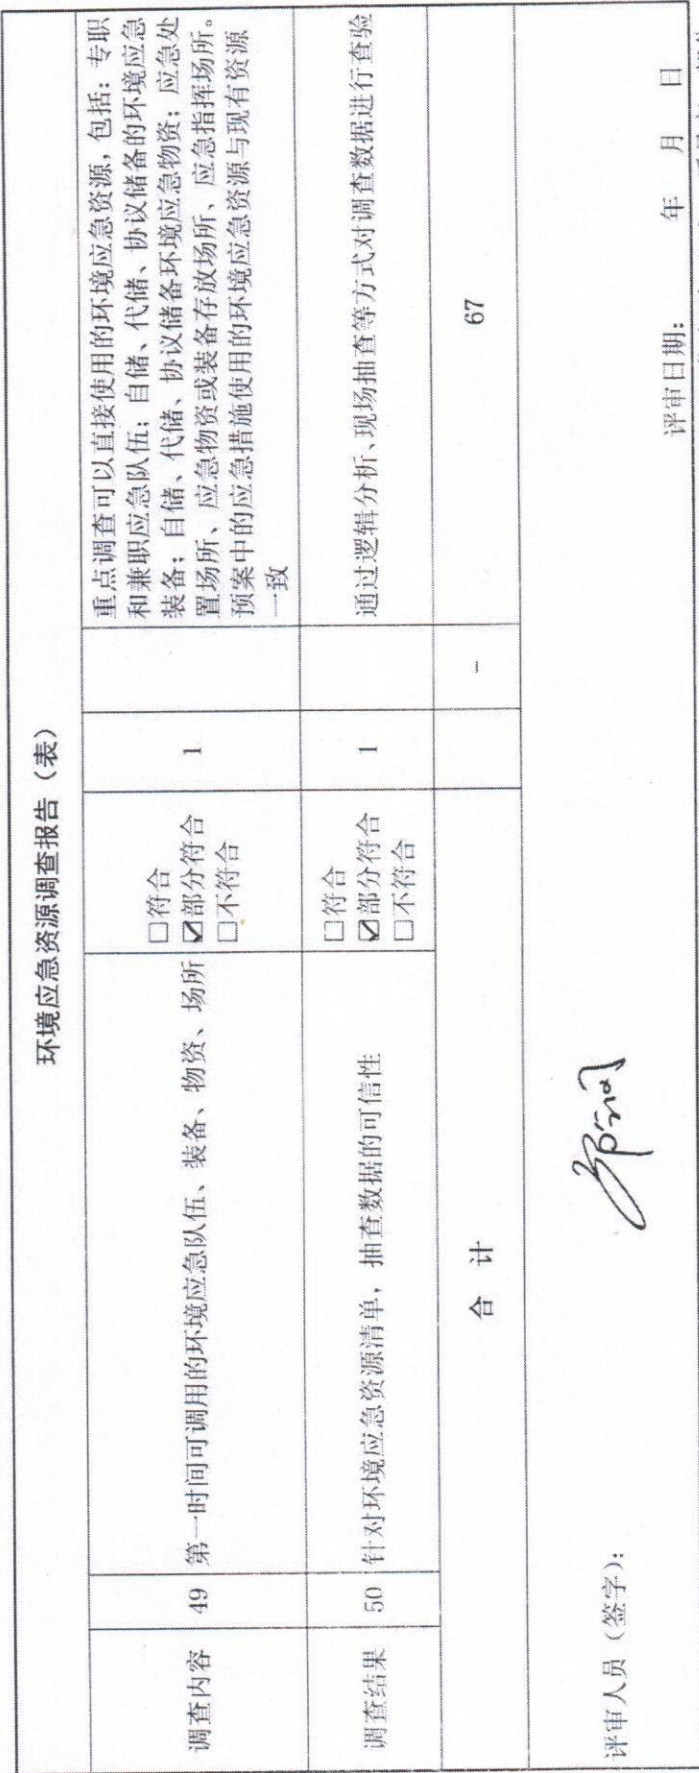 环境应急资源调查报告（表）
调查内容
49
第一时间可调用的环境应急队伍、装备、物资、场所
□符合
☑部分符合
□不符合
1
重点调查可以直接使用的环境应急资源，包括：专职
和兼职应急队伍；自储、代储、协议储备的环境应急
装备；自储、代储、协议储备环境应急物资；应急处
置场所、应急物资或装备存放场所、应急指挥场所。
预案中的应急措施使用的环境应急资源与现有资源
一致
调查结果
50
针对环境应急资源清单，抽查数据的可信性
□符合
☑部分符合
□不符合
1
通过逻辑分析、现场抽查等方式对调查数据进行查验
合 计
-
67
评审人员（签字）：
评审日期： 年 月 日